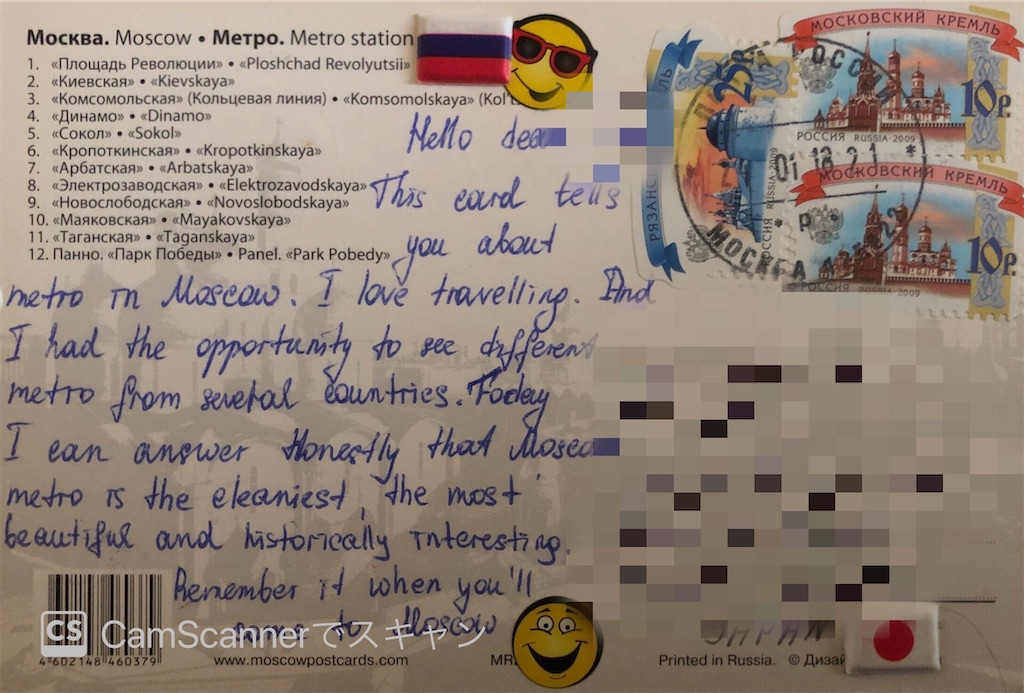 Москва. Moscow • Метро. Metro station
1. «Площадь Революции» • «Ploshchad Revolyutsii»
2. «Киевская» • «Kievskaya»
3. «Комсомольская» (Кольцевая линия) • «Komsomolskaya»
4. «Динамо» • «Dinamo»
5. «Сокол» • «Sokol»
6. «Кропоткинская» • «Kropotkinskaya»
7. «Арбатская» • «Arbatskaya»
8. «Электрозаводская» • «Elektrozavodskaya»
9. «Новослободская» • «Novoslobodskaya»
10. «Маяковская» • «Mayakovskaya»
11. «Таганская» • «Taganskaya»
12. Панно. «Парк Победы» • Panel. «Park Pobedy»
МОСКОВСКИЙ КРЕМЛЬ
25р
10р
РОССИЯ RUSSIA·2009
МОСКОВСКИЙ КРЕМЛЬ
10р
РОССИЯ RUSSIA·2009
РОССИЯ RUSSIA·2009
МОСКВА
Hello
This card tells
you about
metro in Moscow. I love travelling. And
I had the opportunity to see different
metro from several countries. Today
I can answer Honestly that
metro is the cleaniest, the most
beautiful and historically interesting.
Remember it when you'll
come to Moscow
JAPAN
CS CamScannerでスキャン
4 602148 460379
www.moscowpostcards.com
Printed in Russia. ©